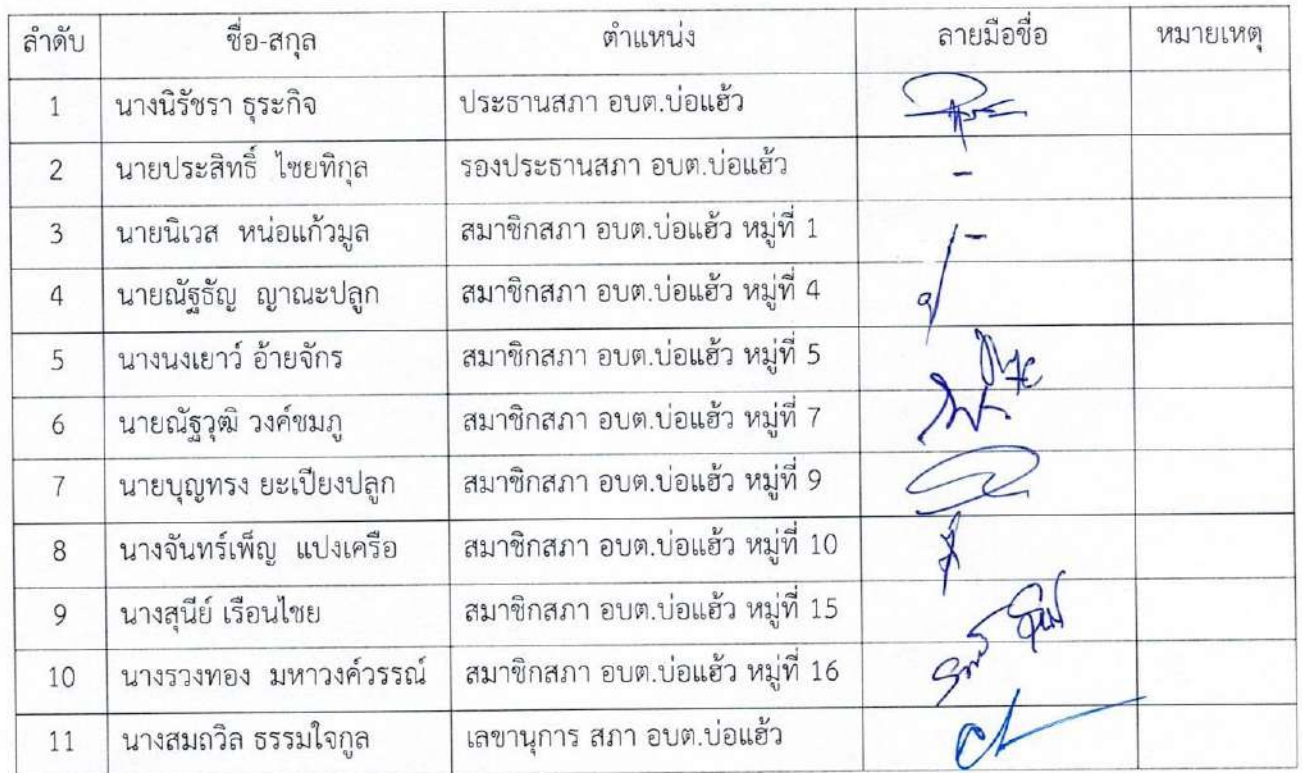 ลำดับ ชื่อ-สกุล ตำแหน่ง ลายมือชื่อ หมายเหตุ
1 นางนิรัชรา ธุระกิจ ประธานสภา อบต.บ่อแฮ้ว
2 นายประสิทธิ์ ไชยทิกุล รองประธานสภา อบต.บ่อแฮ้ว -
3 นายนิเวส หน่อแก้วมูล สมาชิกสภา อบต.บ่อแฮ้ว หมู่ที่ 1 -
4 นายณัฐธัญ ญาณะปลูก สมาชิกสภา อบต.บ่อแฮ้ว หมู่ที่ 4
5 นางนงเยาว์ อ้ายจักร สมาชิกสภา อบต.บ่อแฮ้ว หมู่ที่ 5
6 นายณัฐวุฒิ วงศ์ชมภู สมาชิกสภา อบต.บ่อแฮ้ว หมู่ที่ 7
7 นายบุญทรง ยะเปียงปลูก สมาชิกสภา อบต.บ่อแฮ้ว หมู่ที่ 9
8 นางจันทร์เพ็ญ แปงเครือ สมาชิกสภา อบต.บ่อแฮ้ว หมู่ที่ 10
9 นางสุนีย์ เรือนไชย สมาชิกสภา อบต.บ่อแฮ้ว หมู่ที่ 15
10 นางรวงทอง มหาวงศ์วรรณ์ สมาชิกสภา อบต.บ่อแฮ้ว หมู่ที่ 16
11 นางสมถวิล ธรรมใจกูล เลขานุการ สภา อบต.บ่อแฮ้ว